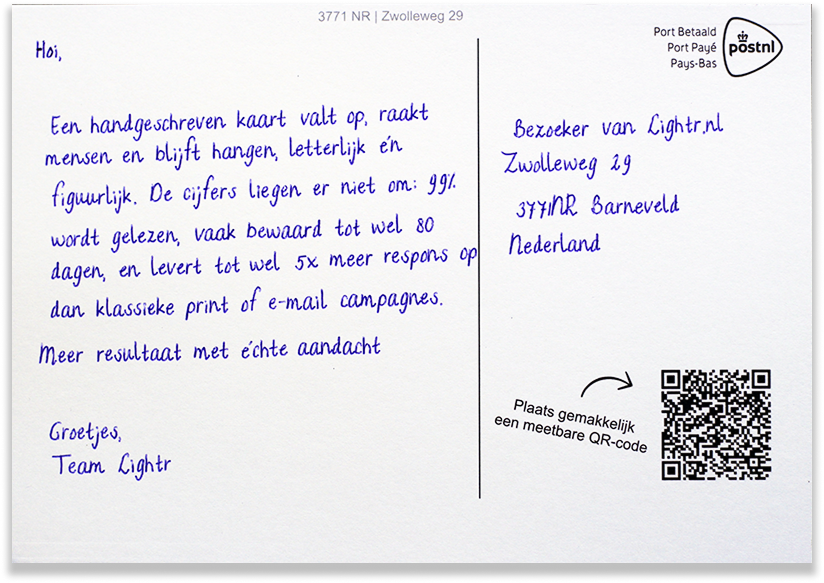 3771 NR | Zwolleweg 29
Hoi,
Een handgeschreven kaart valt op, raakt
mensen en blijft hangen, letterlijk én
figuurlijk. De cijfers liegen er niet om: 99%
wordt gelezen, vaak bewaard tot wel 80
dagen, en levert tot wel 5x meer respons op
dan klassieke print of e-mail campagnes.
Meer resultaat met échte aandacht
Groetjes,
Team Lightr
Port Betaald
Port Payé
Pays-Bas
postnl
Bezoeker van Lightr.nl
Zwolleweg 29
3771NR Barneveld
Nederland
Plaats gemakkelijk
een meetbare QR-code